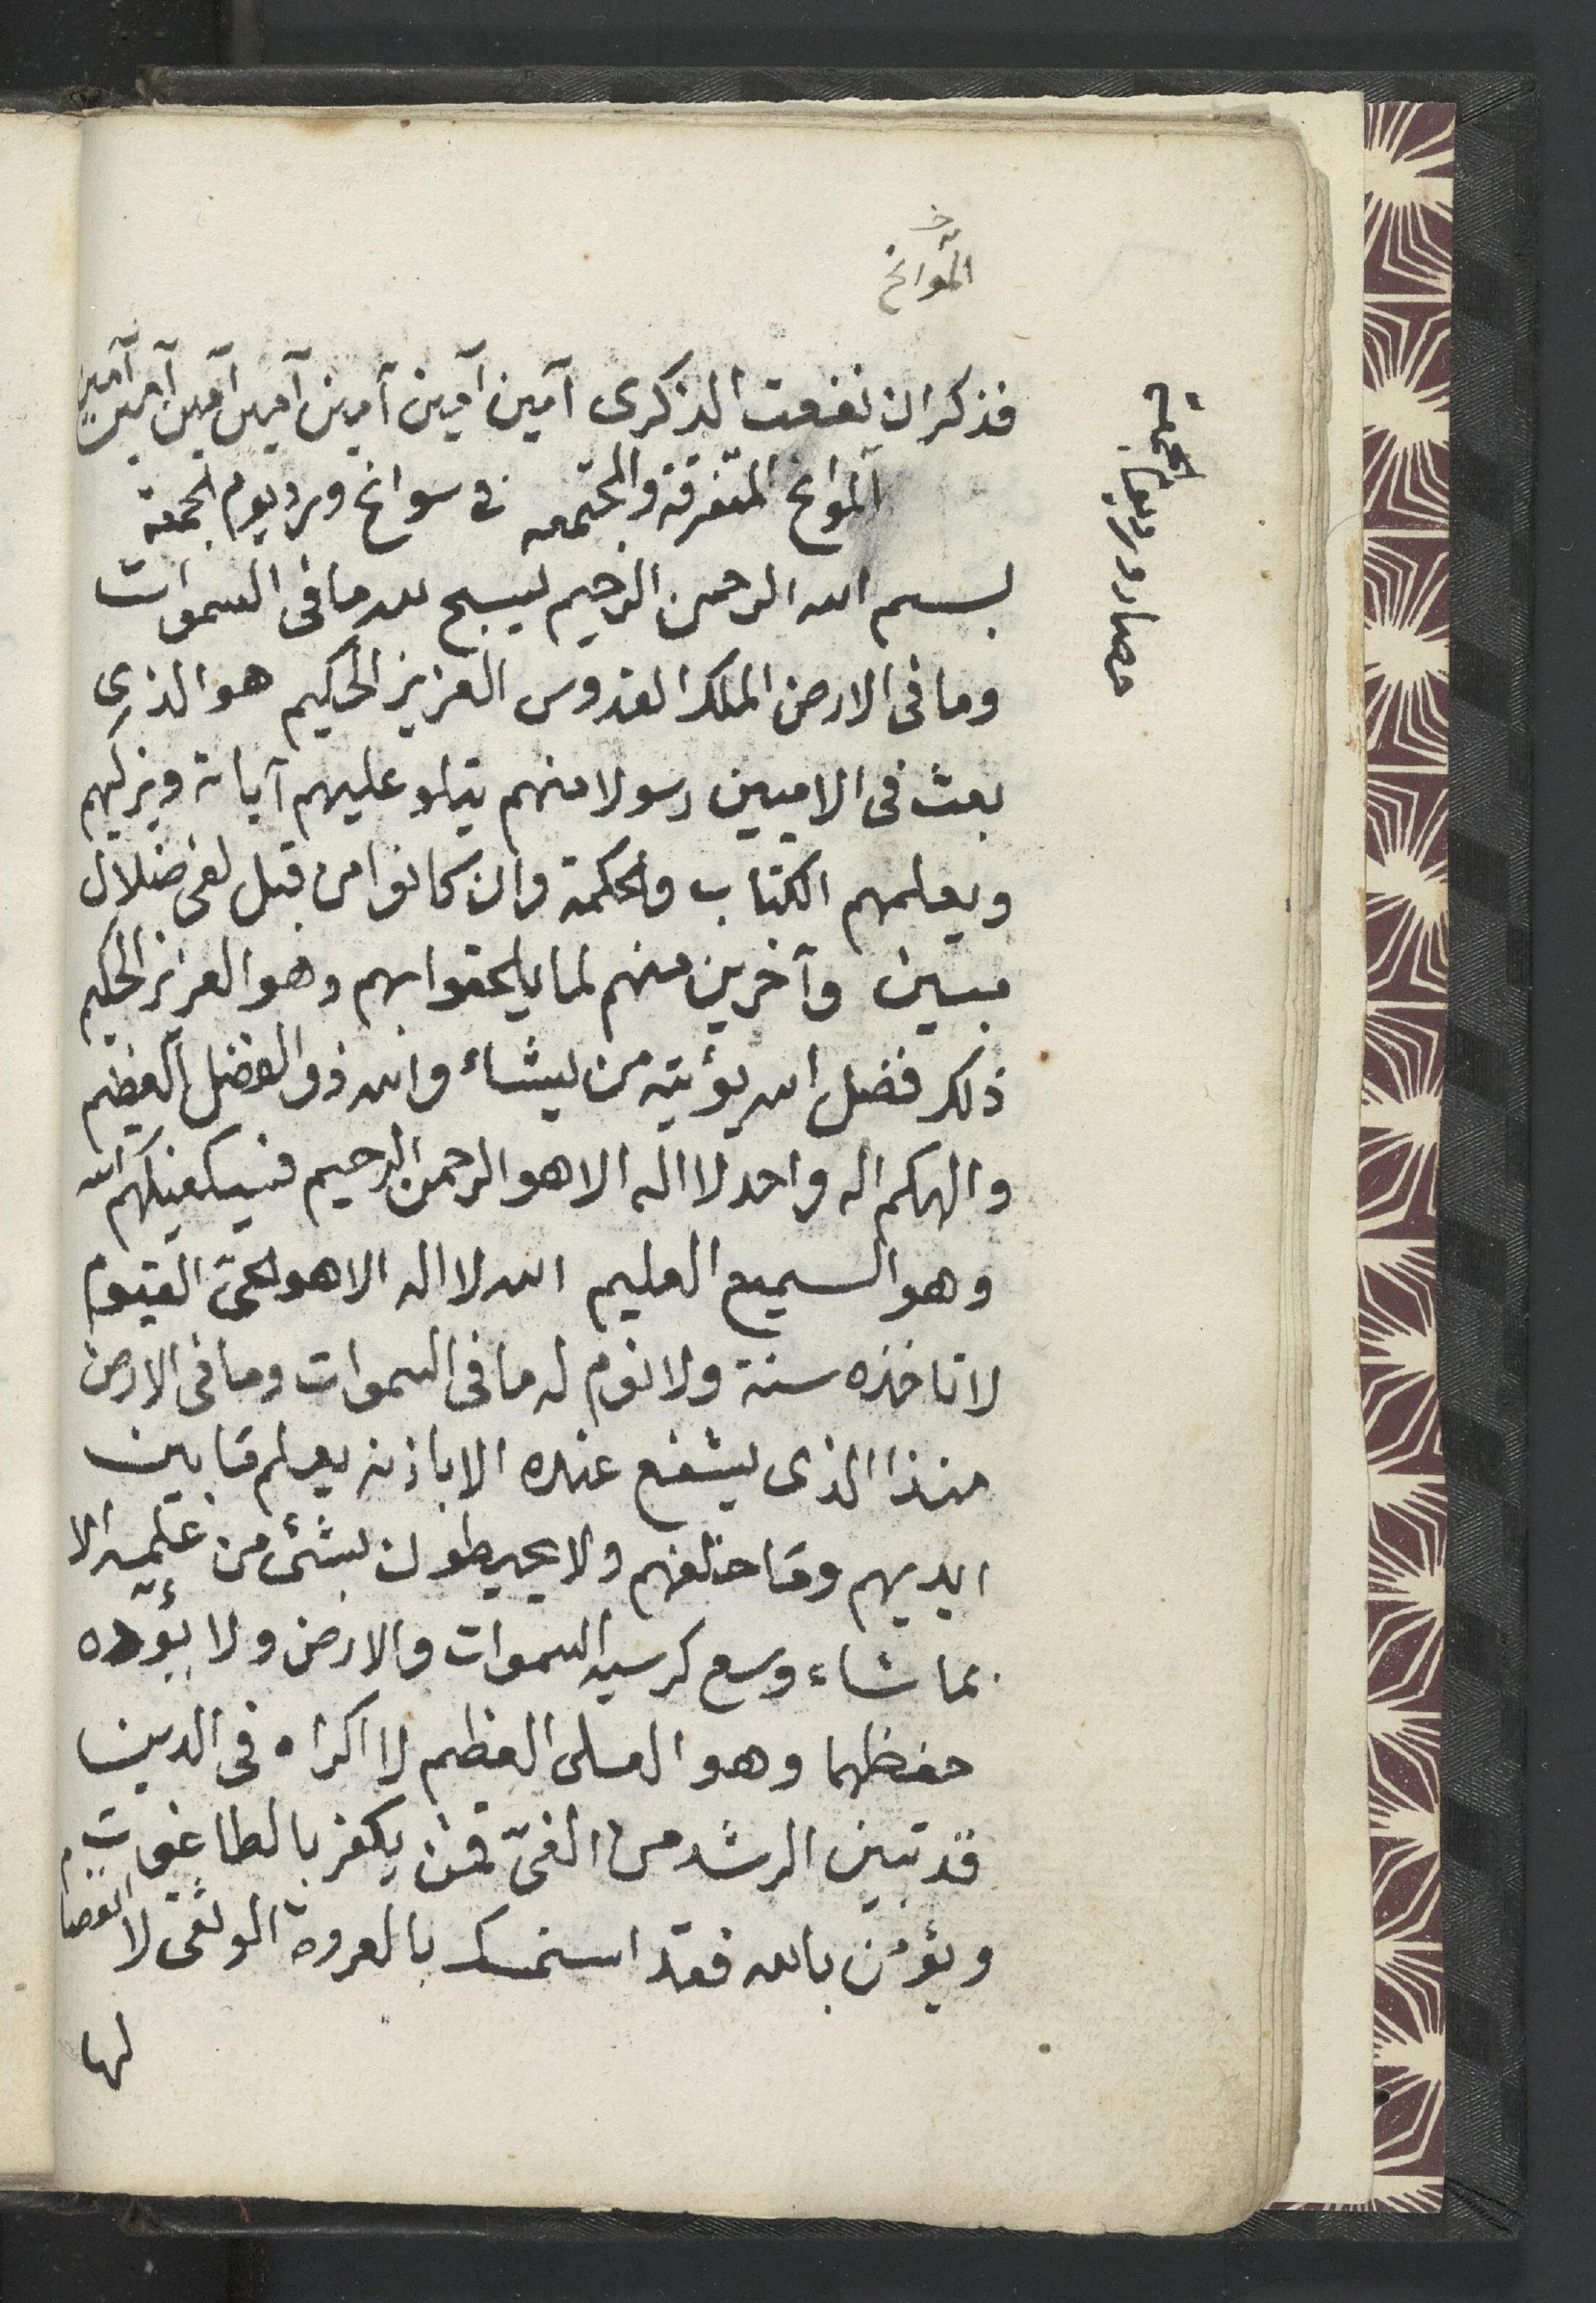 فذكر ان نفعت الذكرى آمين آمين آمين آمين آمين آمين آمين
المتفرقة والمجتمعه فى سوانح ورد يوم الجمعة
بسم الله الرحمن الرحيم يسبح لله ما فى السموات
وما فى الارض الملك القدوس العزيز الحكيم هو الذى
بعث فى الاميين رسولا منهم يتلو عليهم آياته ويزكيهم
ويعلمهم الكتاب والحكمة وان كانوا من قبل لفى ضلال
مبين وآخرين منهم لما يلحقوا بهم وهو العزيز الحكيم
ذلك فضل الله يؤتيه من يشاء والله ذو الفضل العظيم
والهكم اله واحد لا اله الا هو الرحمن الرحيم فسيكفيكهم الله
وهو السميع العليم الله لا اله الا هو الحىّ القيوم
لا تاخذه سنة ولا نوم له ما فى السموات وما فى الارض
منذا الذى يشفع عنده الا باذنه يعلم ما بين
ايديهم وما خلفهم ولا يحيطون بشئ من علمه الا
بما شاء وسع كرسيه السموات والارض ولا يؤده
حفظهما وهو العلى العظيم لا اكراه فى الدين
قد تبين الرشد من الغىّ فمن يكفر بالطاغوت
ويؤمن بالله فقد استمسك بالعروة الوثقى لا انفصام
لها